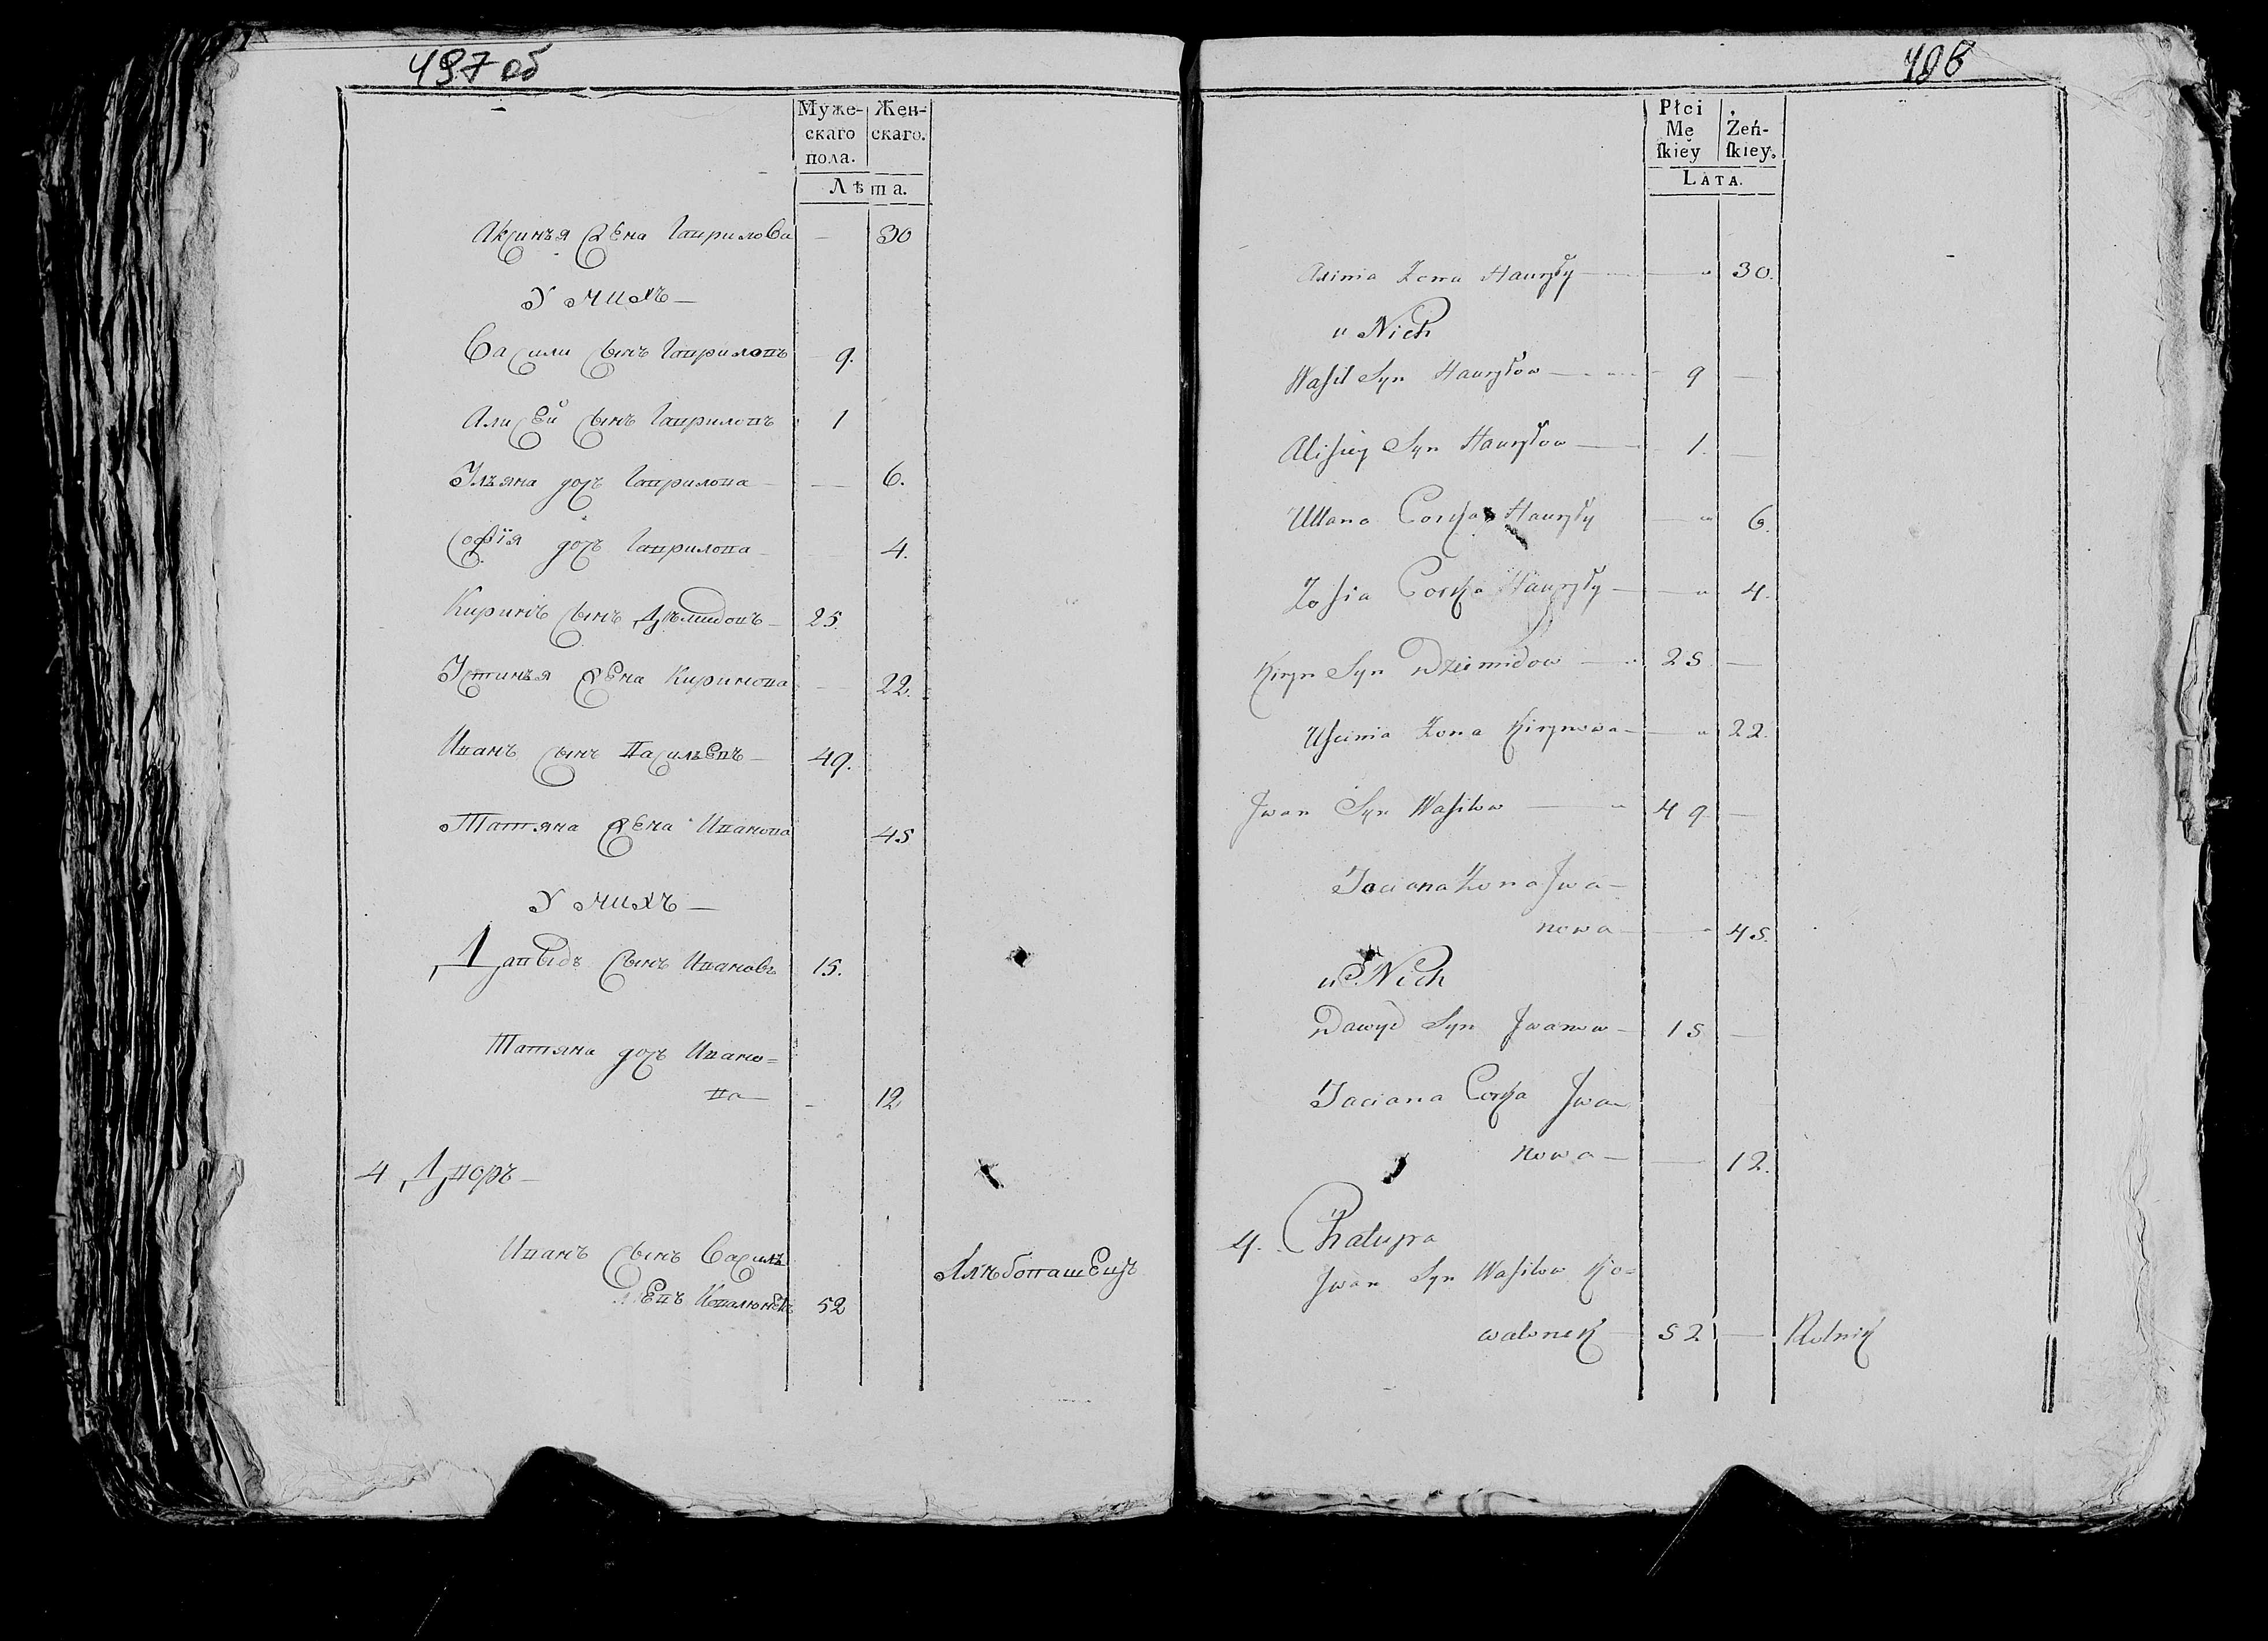 497 об
Муже- Жен-
скаго скаго.
пола.
Лѣта.
Аксинья жена Гаврилова — 30
У нихъ —
Василй сынъ Гавриловъ 9.
Алисей сынъ Гавриловъ 1
Ульяна дочь Гаврилова — 6.
Софія дочь Гаврилова — 4.
Киринъ сынъ Дѣмидовъ — 25.
Устинья жена Киринова — 22.
Иванъ сынъ Васильевъ — 49.
Татяна жена Иванова 45
У нихъ —
Давыдъ сынъ Ивановъ 15.
Татяна дочь Ивано=
ва — - 12
4 Дворъ —
Иванъ сынъ Василь
евъ Ковалюнекъ 52 Хлѣбопашецъ
498
Płci Żeń-
Mę ſkiey.
ſkiey
LATA.
Żona Hauryły — 30.
u Nich
Waſil Syn Hauryłow — 9 —
Aliſiey Syn Hauryłow — 1. —
Ullana Corka Hauryły — 6.
Zoſia Corka Hauryły — 4.
Kiryn Syn Dziemidow — 25 —
Uſcinia Żona Kirynowa — 22.
Jwan Syn Waſilow — 49 —
Taciana Żona Jwa—
nowa — 45.
u Nich
Dawyd Syn Jwanow — 15 —
Taciana Corka Jwa
nowa — 12.
4. Chałupa
Jwan Syn Waſilow Ko=
walonek — 52 — Rolnik